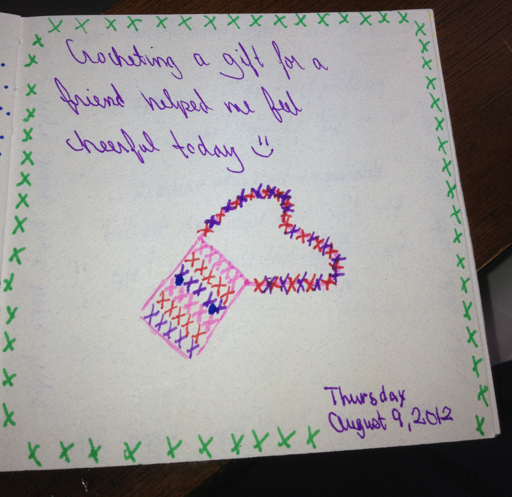 Crocheting a gift for a
friend helped me feel
cheerful today :)
Thursday
August 9, 2012